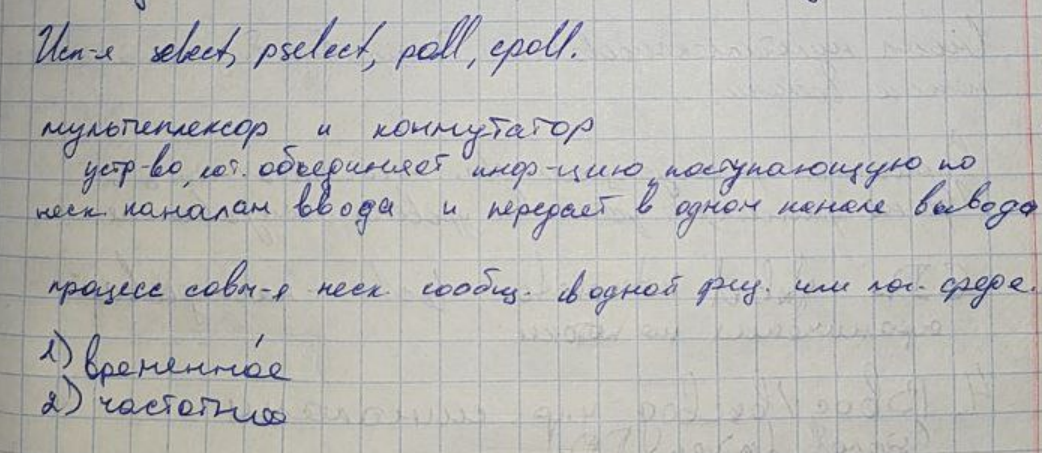 Исп-я select, pselect, poll, epoll.
мультиплексор и коммутатор
устр-во, кот. объединяет инф-цию, поступающую по
неск. каналам ввода и передает в одном канале вывода
процесс совм-я неск. сообщ. в одной физ. или лог. среде.
1) временно́е
2) частотное